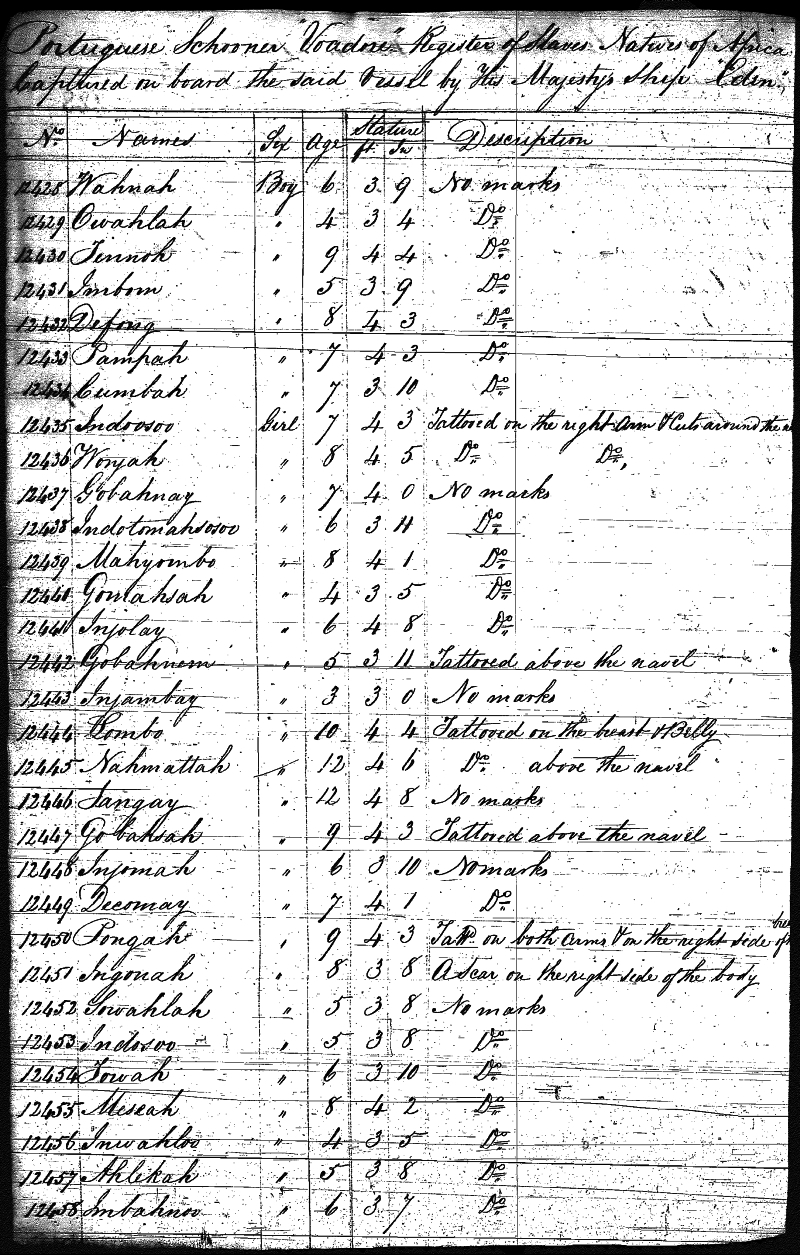 Portuguese Schooner "Voadore" Register of Slaves Natives of Africa
Captured on board the said Vessel by His Majesty's Ship "Eden",
No. Names Sex Age Stature ft. In Description
12428 Wahnah Boy 6 3 9 No marks
12429 Owahlah " 4 3 4 Do.
12430 Tinnoh " 9 4 4 Do.
12431 Imbom " 5 3 9 Do.
12432 Defong " 8 4 3 Do.
12433 Pampah " 7 4 3 Do.
12434 Cumbah " 7 3 10 Do.
12435 Indoosoo Girl 7 4 3 Tattooed on the right Arm & Cuts around the
12436 Wonjah " 8 4 5 Do. Do.
12437 Gobahnay " 7 4 0 No marks
12438 Indotomahsosoo " 6 3 11 Do.
12439 Mahyombo " 8 4 1 Do.
12440 Gomahsah " 4 3 5 Do.
12441 Injolay " 6 4 8 Do.
12442 Gobahnem " 5 3 11 Tattooed above the navel
12443 Injambay " 3 3 0 No marks
12444 Lombo " 10 4 4 Tattooed on the breast & Belly
12445 Nahmattah " 12 4 6 Do. above the navel
12446 Sangay " 12 4 8 No marks
12447 Gobahsah " 9 4 3 Tattooed above the navel
12448 Injomah " 6 3 10 No marks
12449 Decomay " 7 4 1 Do.
12450 Pongah " 9 4 3 Tattd. on both Arms & on the right side of
12451 Ingonah " 8 3 8 A Scar on the right side of the body
12452 Sowahlah " 5 3 8 No marks
12453 Indosoo " 5 3 8 Do.
12454 Towah " 6 3 10 Do.
12455 Meseah " 8 4 2 Do.
12456 Inwahloo " 4 3 5 Do.
12457 Ahlekah " 5 3 8 Do.
12458 Imbahnoo " 6 3 7 Do.